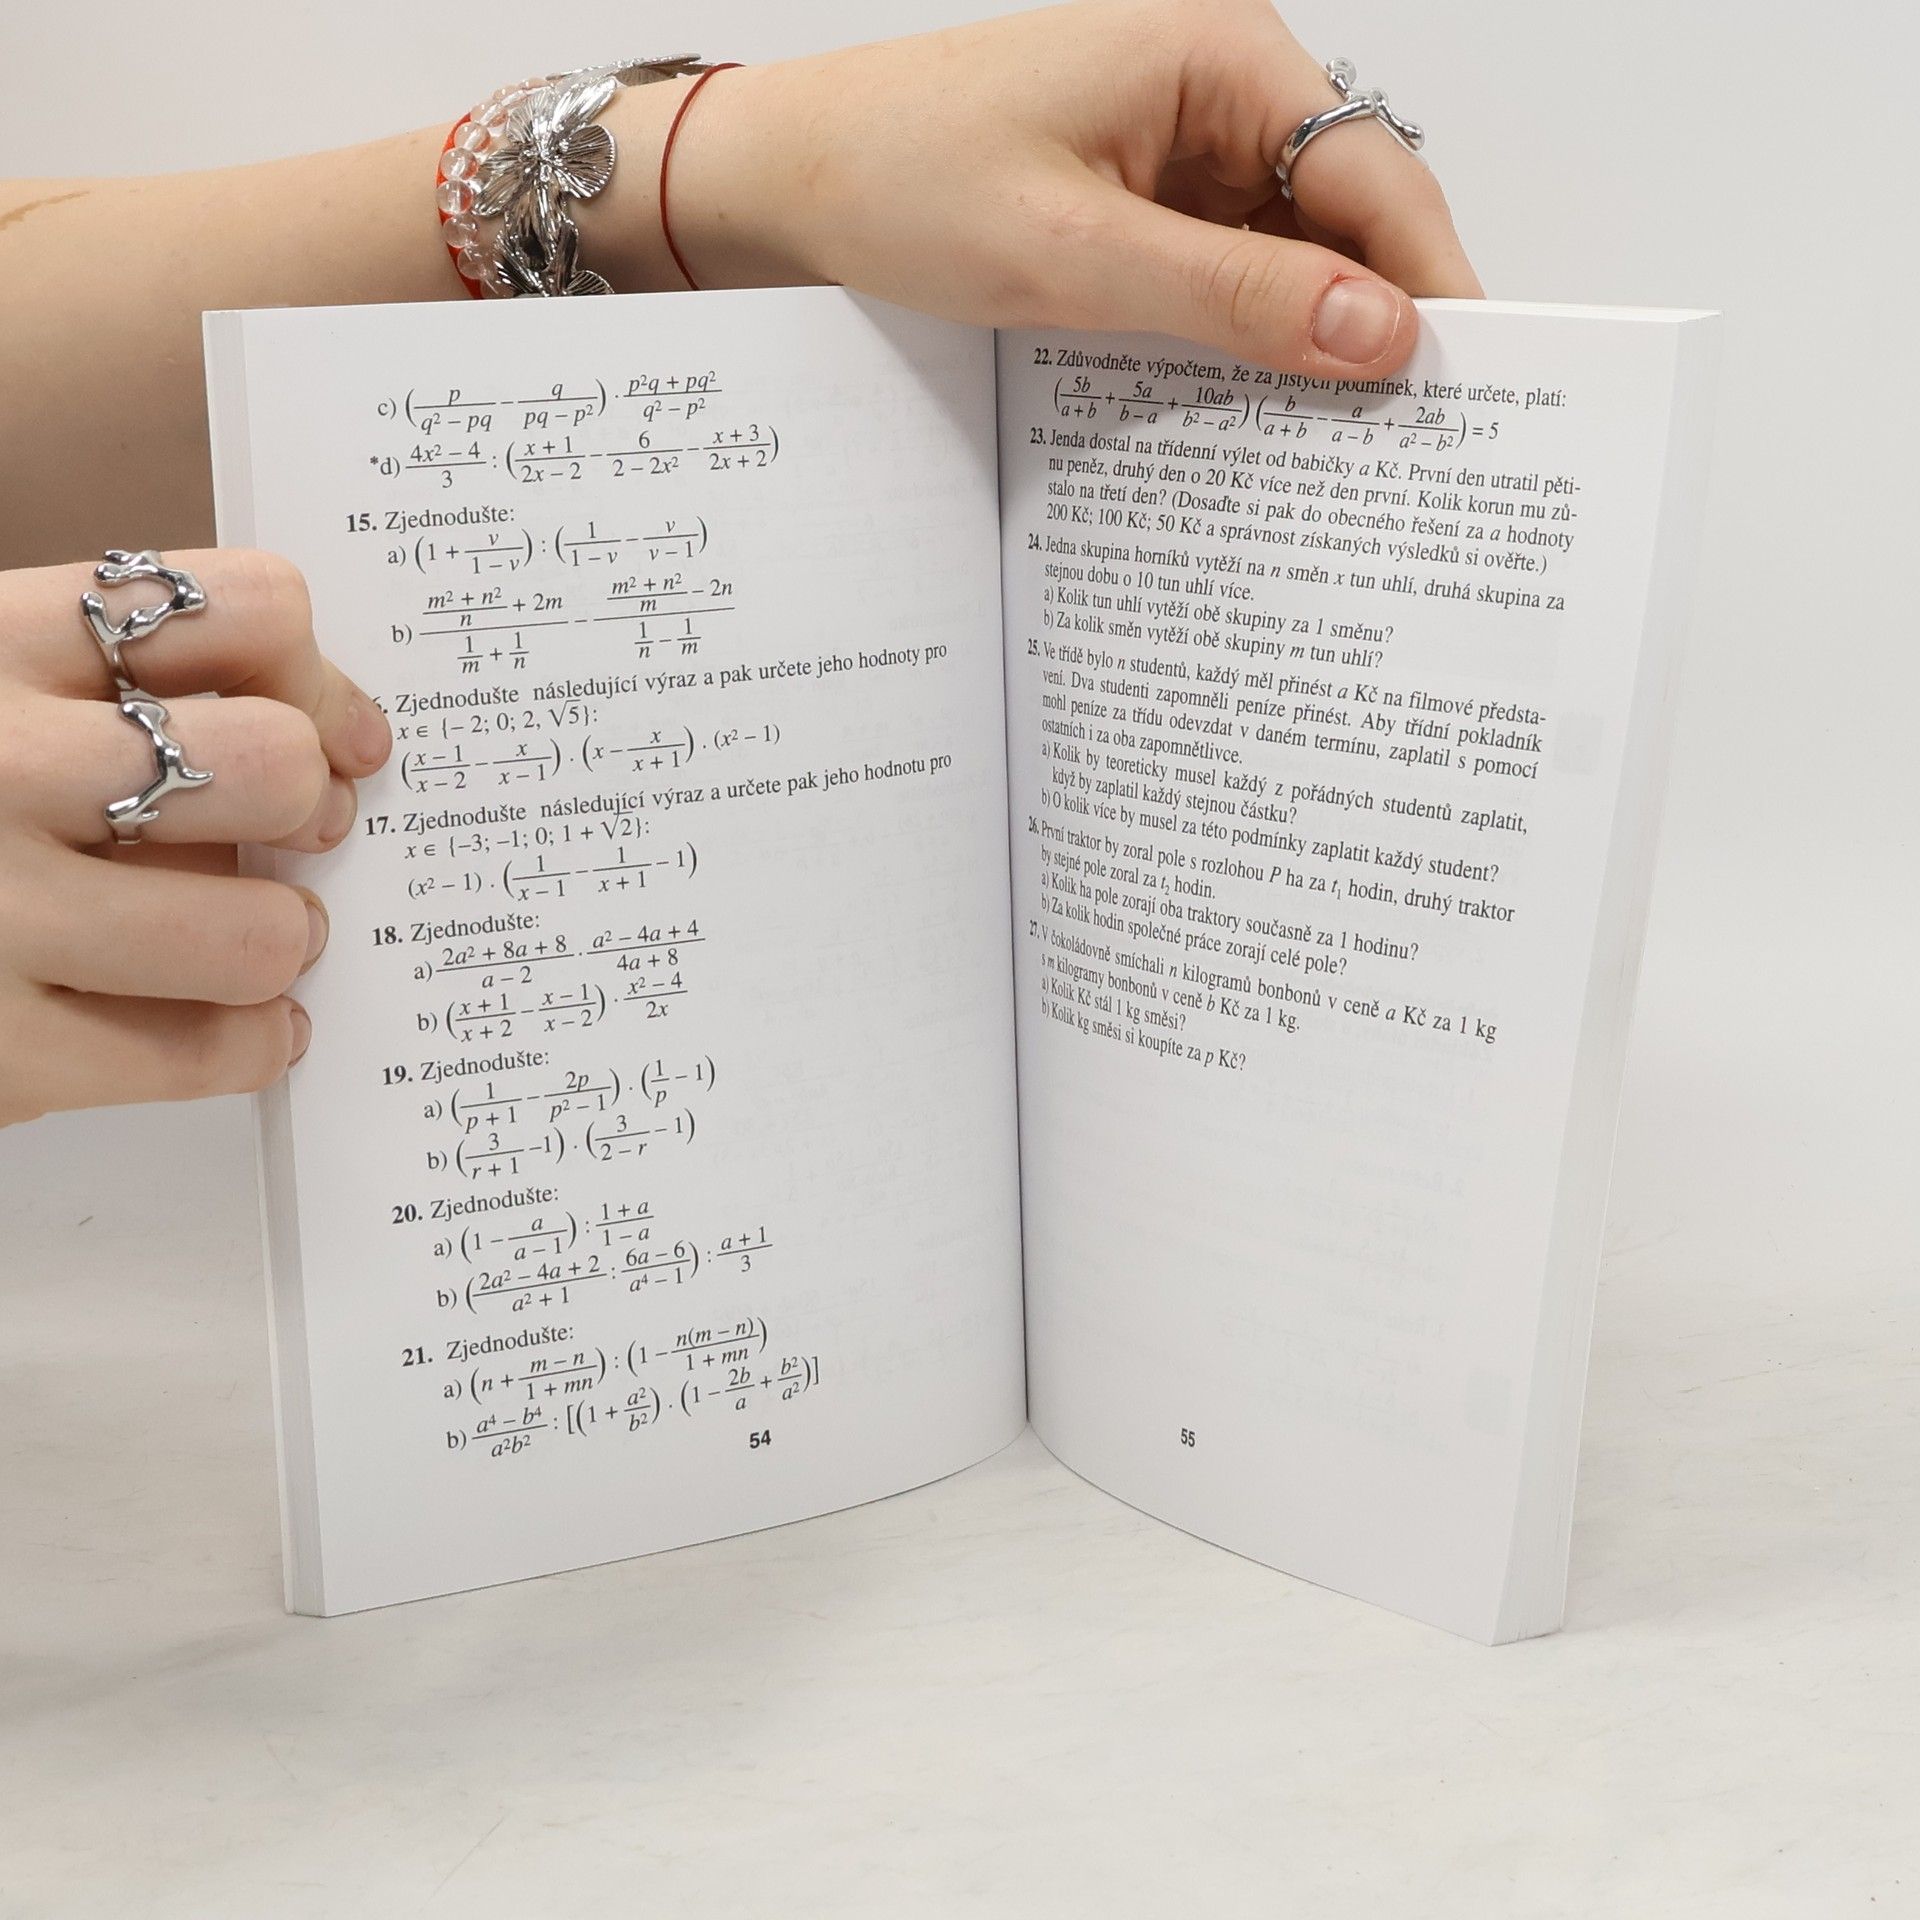 c) (p/(q² – pq) – q/(pq – p²)) · (p²q + pq²)/(q² – p²)
*d) (4x² – 4)/3 : ((x + 1)/(2x – 2) – 6/(2 – 2x²) – (x + 3)/(2x + 2))
15. Zjednodušte:
a) (1 + v/(1 – v)) : (1/(1 – v) – v/(v – 1))
b) ((m² + n²)/n + 2m)/(1/m + 1/n) – ((m² + n²)/m – 2n)/(1/n – 1/m)
. Zjednodušte následující výraz a pak určete jeho hodnoty pro
x ∈ {– 2; 0; 2, √5}:
((x – 1)/(x – 2) – x/(x – 1)) · (x – x/(x + 1)) · (x² – 1)
17. Zjednodušte následující výraz a určete pak jeho hodnotu pro
x ∈ {–3; –1; 0; 1 + √2}:
(x² – 1) · (1/(x – 1) – 1/(x + 1) – 1)
18. Zjednodušte:
a) (2a² + 8a + 8)/(a – 2) · (a² – 4a + 4)/(4a + 8)
b) ((x + 1)/(x + 2) – (x – 1)/(x – 2)) · (x² – 4)/2x
19. Zjednodušte:
a) (1/(p + 1) – 2p/(p² – 1)) · (1/p – 1)
b) (3/(r + 1) –1) · (3/(2 – r) – 1)
20. Zjednodušte:
a) (1 – a/(a – 1)) : (1 + a)/(1 – a)
b) ((2a² – 4a + 2)/(a² + 1) : (6a – 6)/(a⁴ – 1)) : (a + 1)/3
21. Zjednodušte:
a) (n + (m – n)/(1 + mn)) : (1 – n(m – n)/(1 + mn))
b) (a⁴ – b⁴)/a²b² : [(1 + a²/b²) · (1 – 2b/a + b²/a²)]
54
22. Zdůvodněte výpočtem, že za jistých podmínek, které určete, platí:
(5b/(a + b) + 5a/(b – a) + 10ab/(b² – a²)) (b/(a + b) – a/(a – b) + 2ab/(a² – b²)) = 5
23. Jenda dostal na třídenní výlet od babičky a Kč. První den utratil pěti-
nu peněz, druhý den o 20 Kč více než den první. Kolik korun mu zů-
stalo na třetí den? (Dosaďte si pak do obecného řešení za a hodnoty
200 Kč; 100 Kč; 50 Kč a správnost získaných výsledků si ověřte.)
24. Jedna skupina horníků vytěží na n směn x tun uhlí, druhá skupina za
stejnou dobu o 10 tun uhlí více.
a) Kolik tun uhlí vytěží obě skupiny za 1 směnu?
b) Za kolik směn vytěží obě skupiny m tun uhlí?
25. Ve třídě bylo n studentů, každý měl přinést a Kč na filmové předsta-
vení. Dva studenti zapomněli peníze přinést. Aby třídní pokladník
mohl peníze za třídu odevzdat v daném termínu, zaplatil s pomocí
ostatních i za oba zapomnětlivce.
a) Kolik by teoreticky musel každý z pořádných studentů zaplatit,
když by zaplatil každý stejnou částku?
b) O kolik více by musel za této podmínky zaplatit každý student?
26. První traktor by zoral pole s rozlohou P ha za t₁ hodin, druhý traktor
by stejné pole zoral za t₂ hodin.
a) Kolik ha pole zorají oba traktory současně za 1 hodinu?
b) Za kolik hodin společné práce zorají celé pole?
27. V čokoládovně smíchali n kilogramů bonbonů v ceně a Kč za 1 kg
s m kilogramy bonbonů v ceně b Kč za 1 kg.
a) Kolik Kč stál 1 kg směsi?
b) Kolik kg směsi si koupíte za p Kč?
55